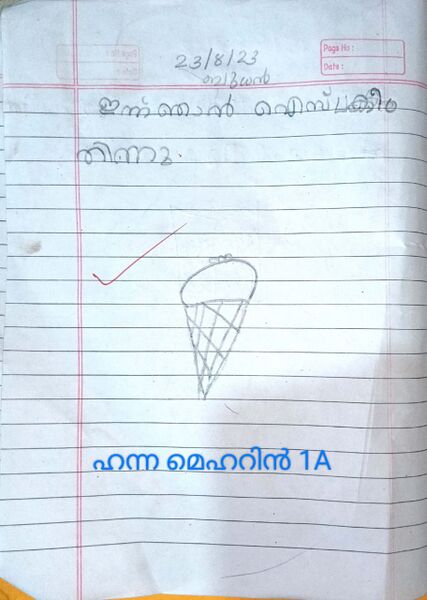 Page No :
Date :
23/8/23
ബുധൻ
ഇന്ന് ഞാൻ ഐസ്ക്രീം
തിന്നു.
ഹന്ന മെഹറിൻ 1A